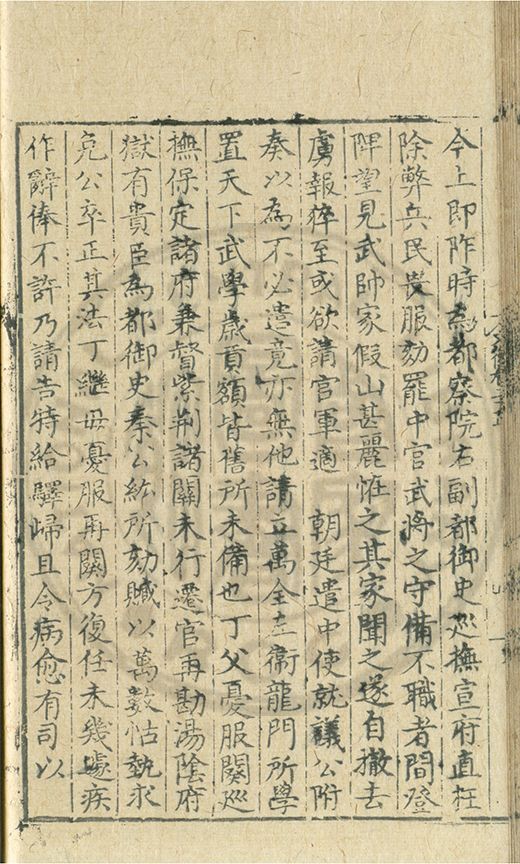 今上即阼時為都察院右副都御史巡撫宣府直枉
除弊兵民畏服劾罷中官武將之守備不職者間登
陴望見武帥家假山甚麗恠之其家聞之遂自撤去
虜報猝至或欲請官軍適 朝廷遣中使就議公附
奏以為不必遣竟亦無他請立萬全左衛龍門所學
置天下武學歲貢額皆舊所未備也丁父憂服闋巡
撫保定諸府兼督紫荊諸關未行遷官再勘湯陰府
獄有貴臣為都御史秦公紘所劾贓以萬數怙埶求
免公卒正其法丁繼母憂服再闋方復任未幾遽疾
作辭俸不許乃請告特給驛歸且令病愈有司以